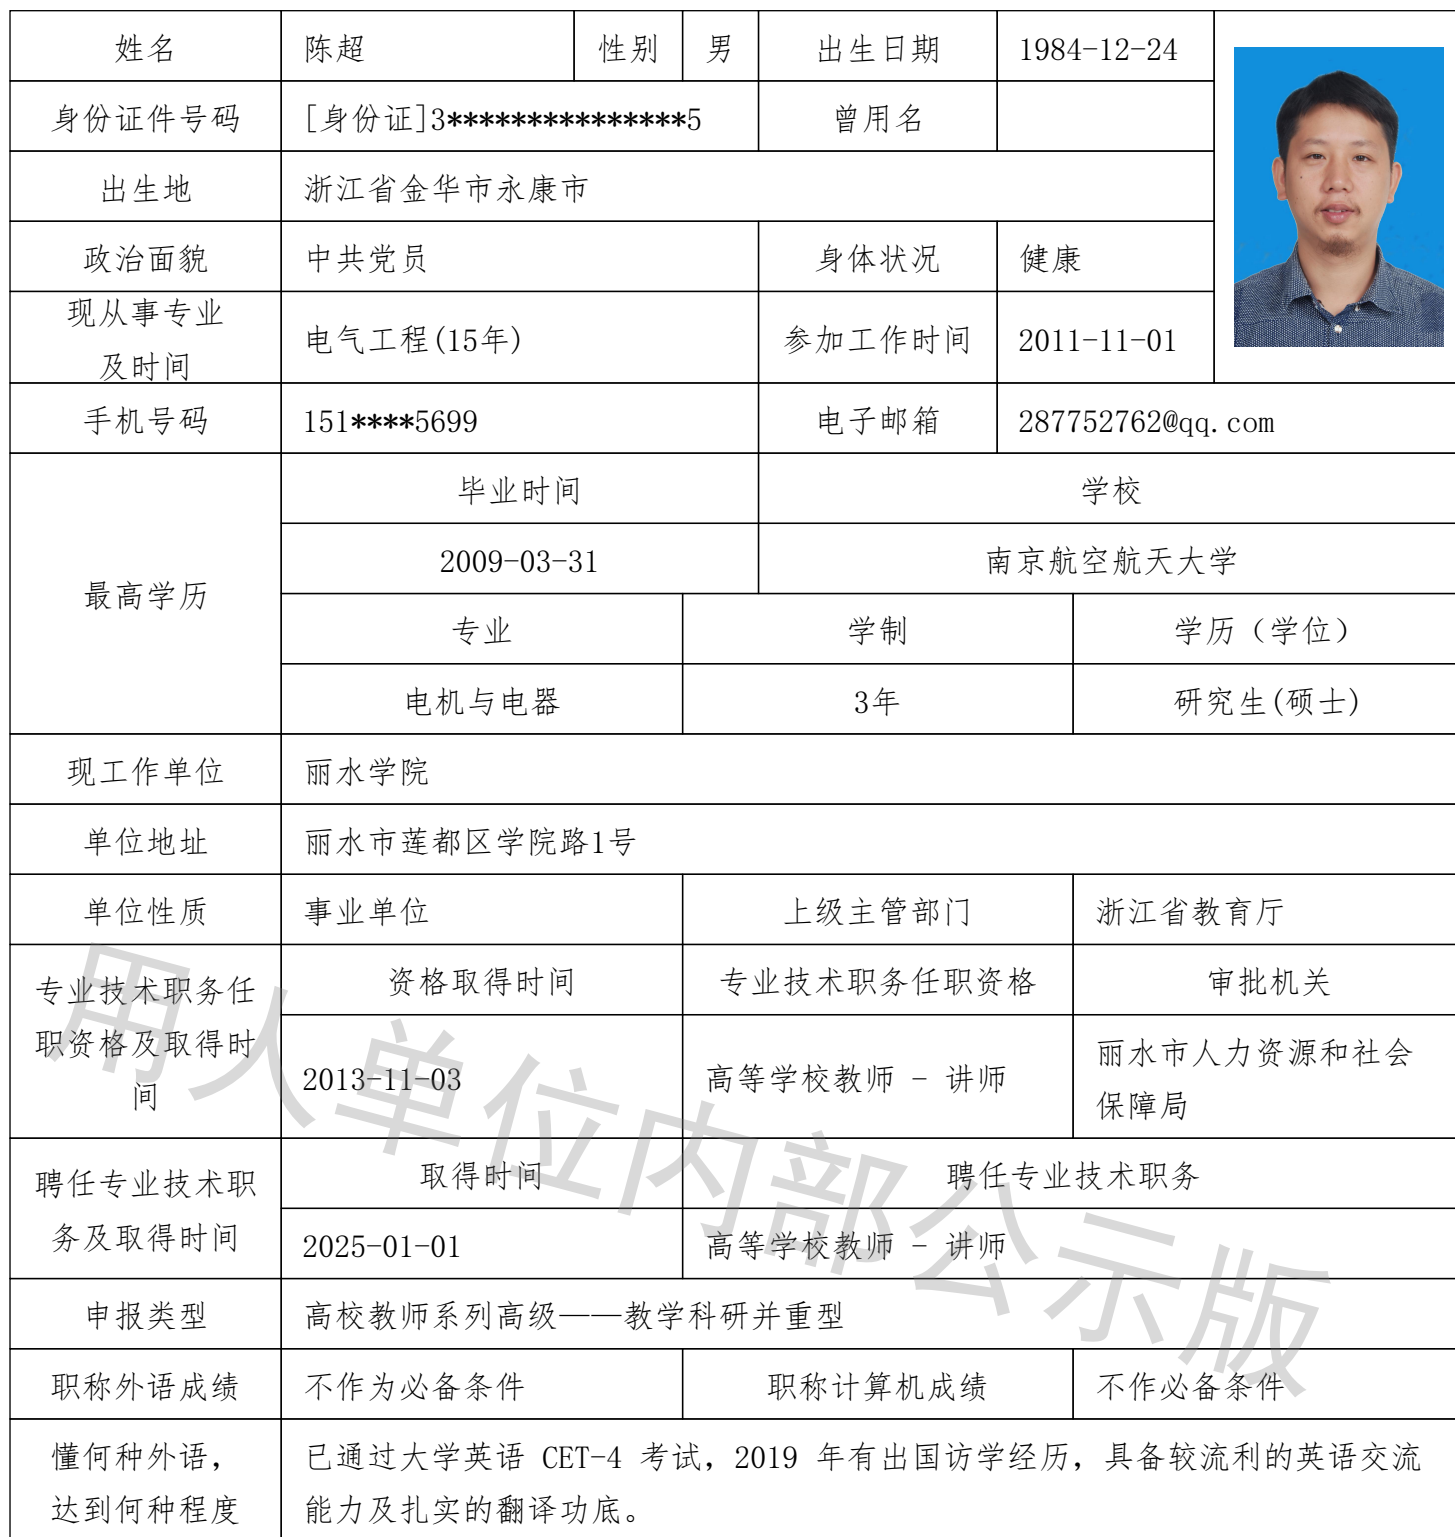 姓名 陈超 性别 男 出生日期 1984-12-24
身份证件号码 [身份证]3***************5 曾用名
出生地 浙江省金华市永康市
政治面貌 中共党员 身体状况 健康
现从事专业
及时间
电气工程(15年) 参加工作时间 2011-11-01
手机号码 151****5699 电子邮箱 287752762@qq.com
最高学历
毕业时间 学校
2009-03-31 南京航空航天大学
专业 学制 学历（学位）
电机与电器 3年 研究生(硕士)
现工作单位 丽水学院
单位地址 丽水市莲都区学院路1号
单位性质 事业单位 上级主管部门 浙江省教育厅
专业技术职务任
职资格及取得时
间
资格取得时间 专业技术职务任职资格 审批机关
2013-11-03 高等学校教师 - 讲师 丽水市人力资源和社会
保障局
聘任专业技术职
务及取得时间
取得时间 聘任专业技术职务
2025-01-01 高等学校教师 - 讲师
申报类型 高校教师系列高级——教学科研并重型
职称外语成绩 不作为必备条件 职称计算机成绩 不作必备条件
懂何种外语，
达到何种程度
已通过大学英语 CET-4 考试，2019 年有出国访学经历，具备较流利的英语交流
能力及扎实的翻译功底。
用人单位内部公示版